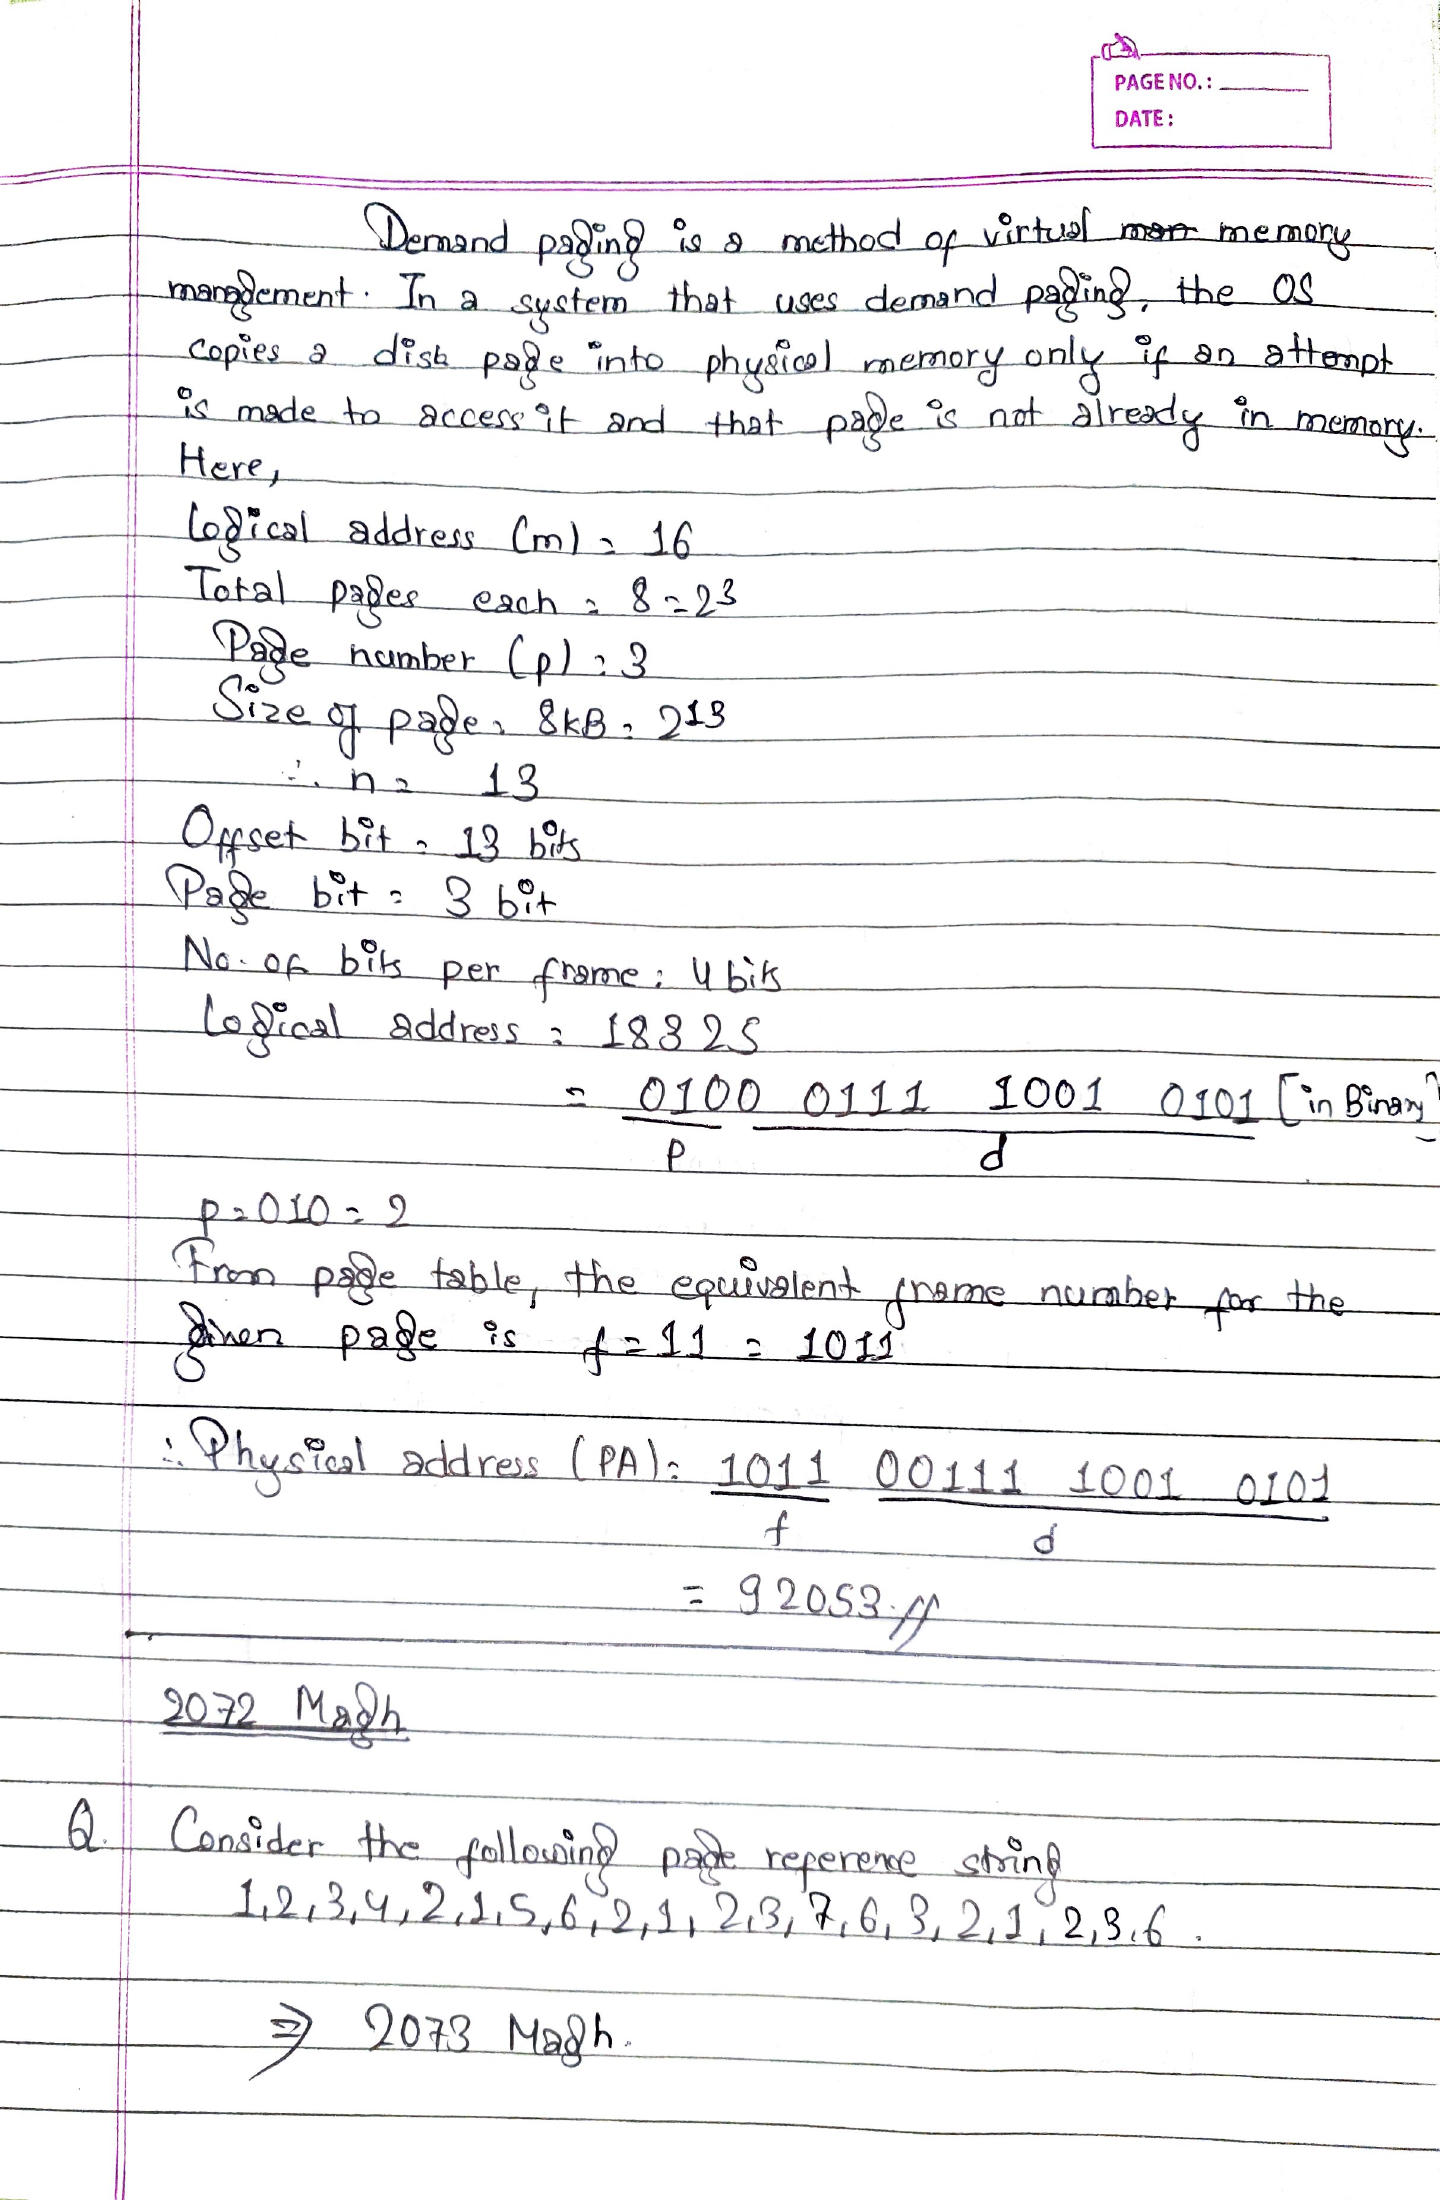 PAGE NO.:
DATE:
Demand paging is a method of virtual mem memory
management. In a system that uses demand paging, the OS
copies a disk page into physical memory only if an attempt
is made to access it and that page is not already in memory.
Here,
Logical address (m) = 16
Total pages each = 8 = 2³
Page number (p) = 3
Size of page = 8kB = 2¹³
∴ n = 13
Offset bit = 13 bits
Page bit = 3 bit
No. of bits per frame = 4 bits
Logical address = 18325
= 0100 0111 1001 0101 [in Binary]
p d
p = 010 = 2
From page table, the equivalent frame number for the
given page is f = 11 = 1011
∴ Physical address (PA) = 1011 00111 1001 0101
f d
= 92053.
2072 Magh
Q. Consider the following page reference string
1,2,3,4,2,1,5,6,2,1,2,3,7,6,3,2,1,2,3,6.
⇒ 2073 Magh.